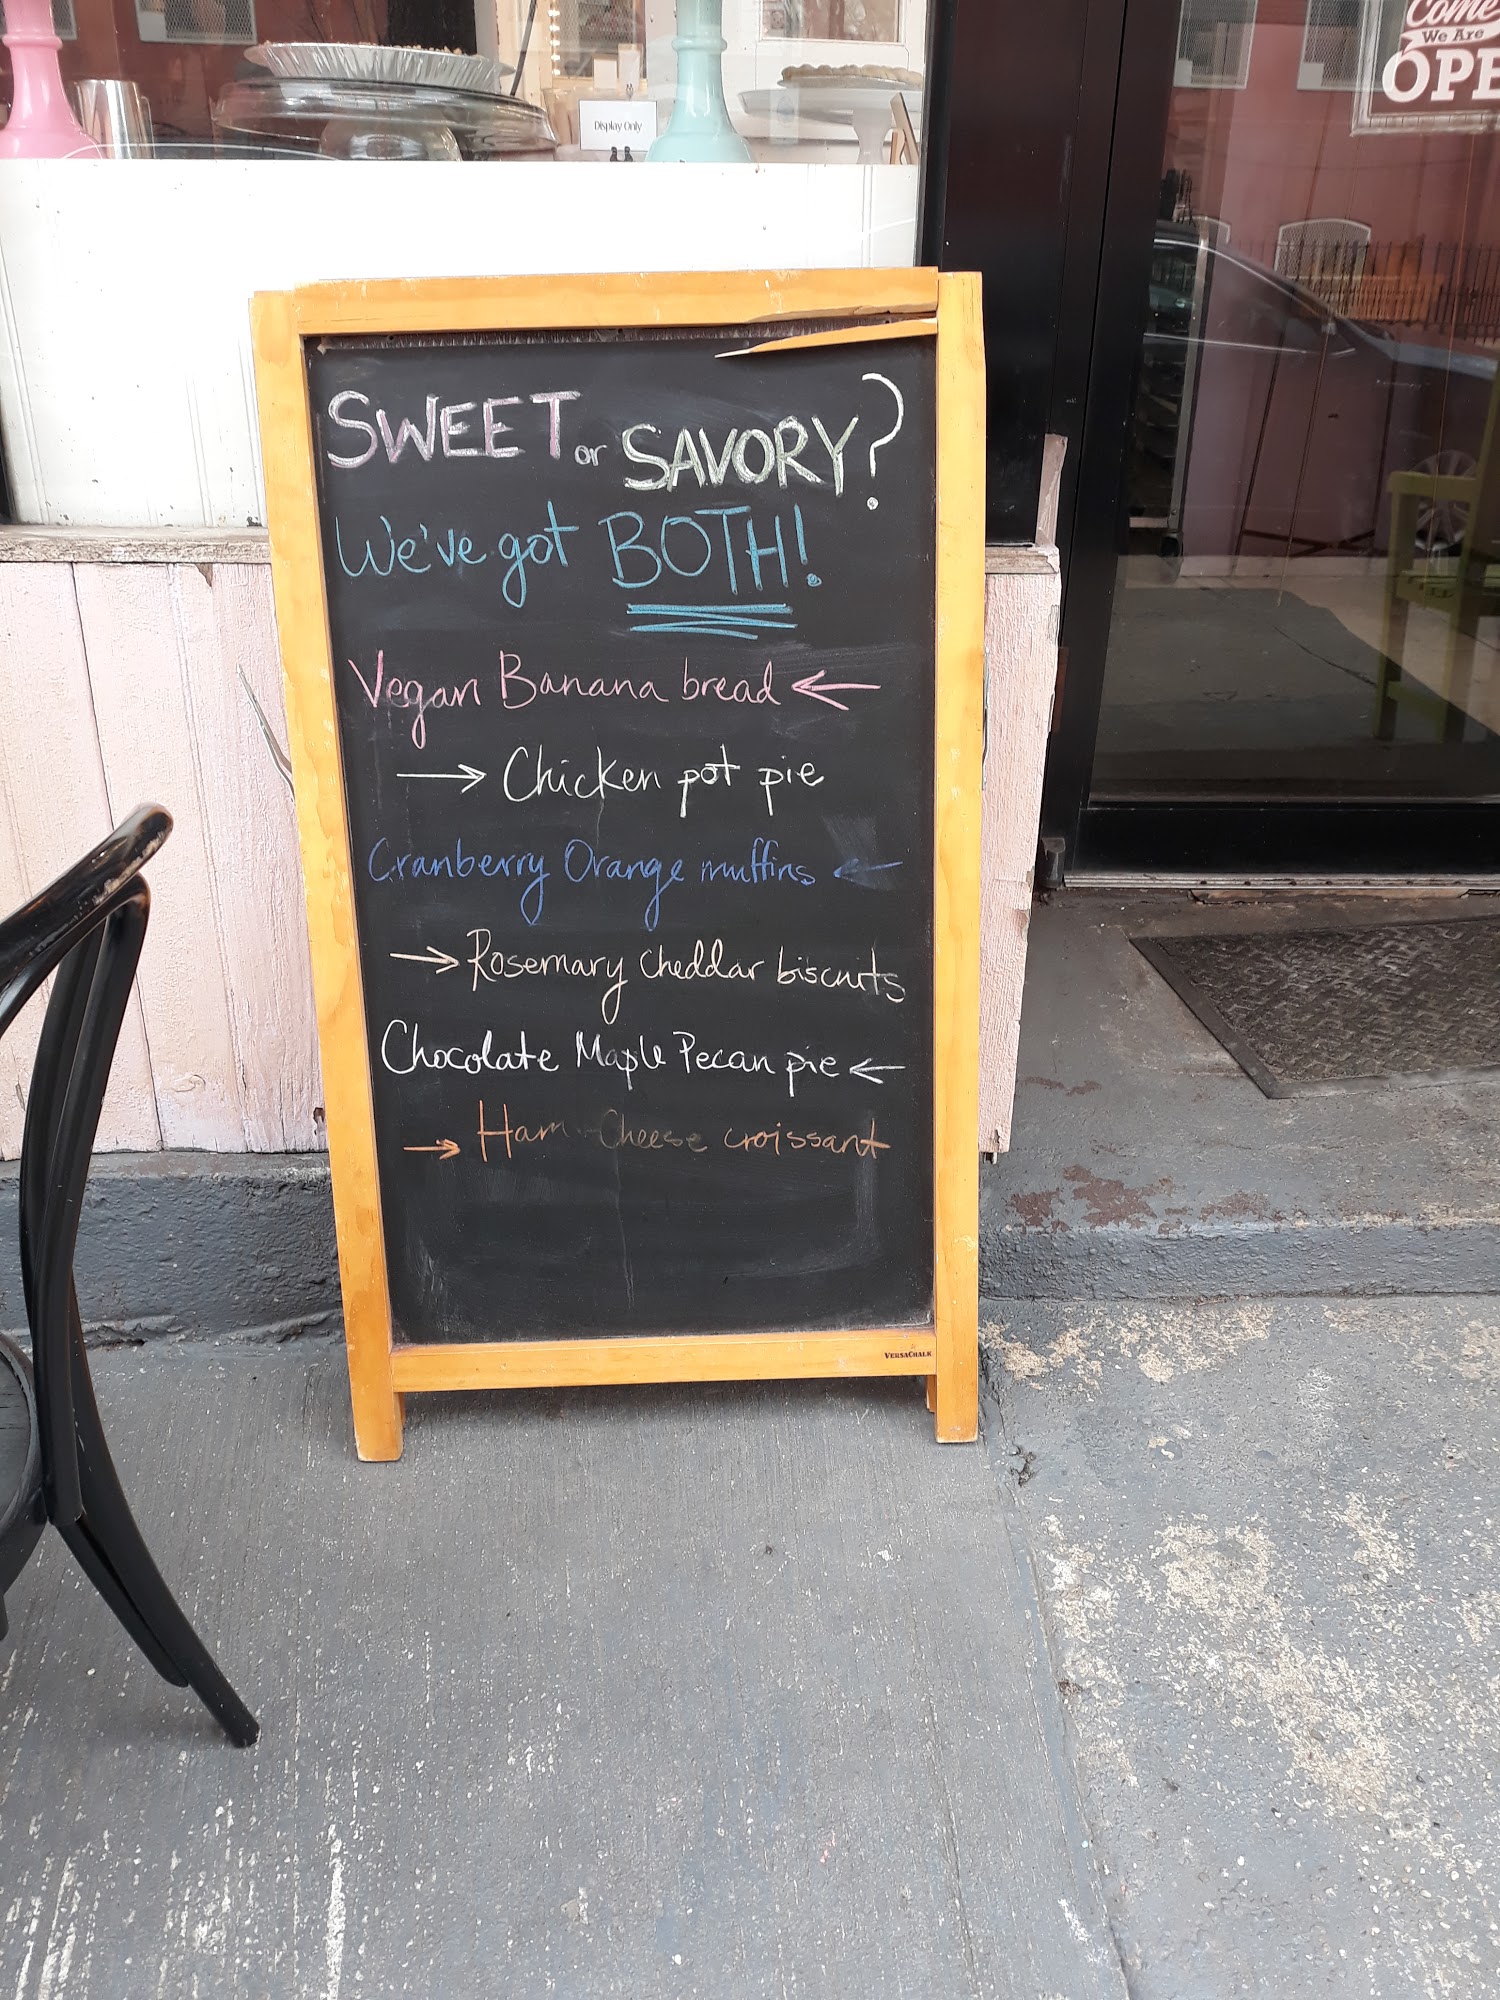 Come
We Are
OPE
Display Only
SWEET or SAVORY?
We've got BOTH!
Vegan Banana bread ←
→ Chicken pot pie
Cranberry Orange muffins ←
→ Rosemary cheddar biscuits
Chocolate Maple Pecan pie ←
→ Ham-Cheese croissant
VERSACHALK